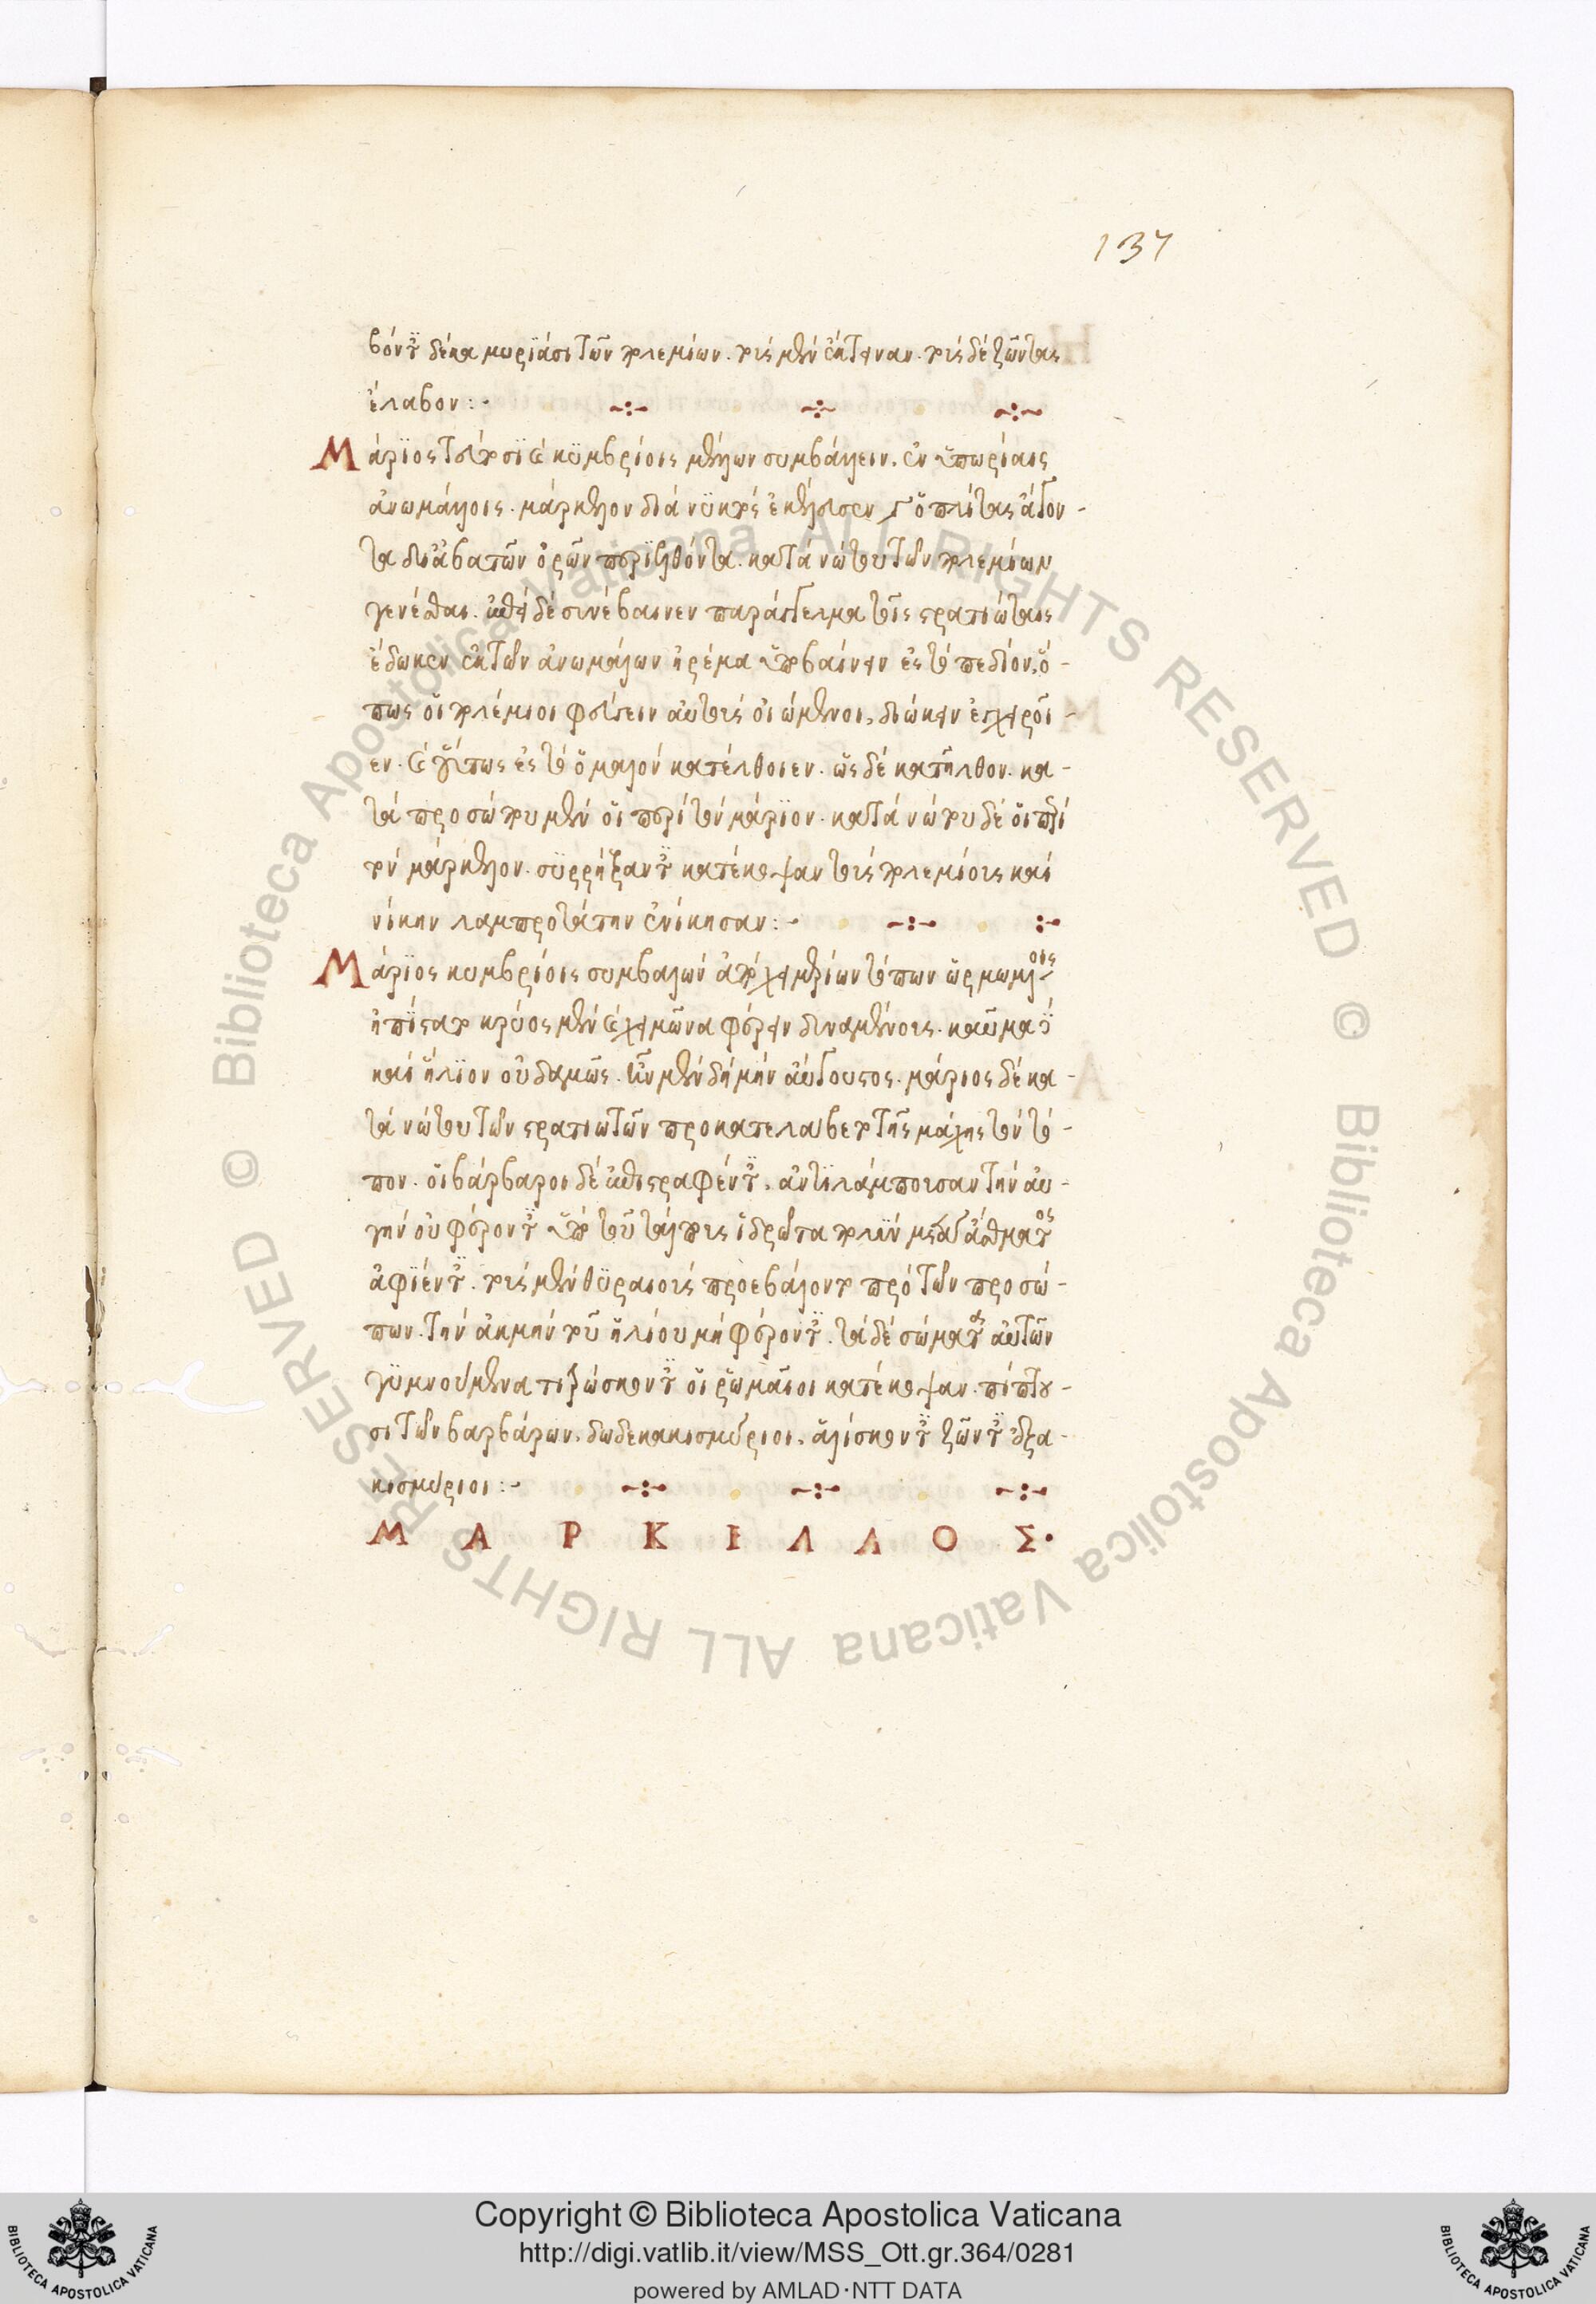 137
βόντες δέκα μυριάσι τῶν πολεμίων. τοὺς μὲν ἔκτειναν. τοὺς δὲ ζῶντας
ἔλαβον:
Μάριος τεύτοσι καὶ κύμβροις μέλλων συμβάλλειν. ἐν ὑπωρίαις
ἀνωμάλοις. μάρκελλον διὰ νυκτὸς ἐκέλευσεν τρισχιλίους ὁπλίτας ἄγον-
τα δι' ἀβάτων ὀρῶν περιελθόντα. κατὰ νώτου τῶν πολεμίων
γενέσθαι. ἐπεὶ δὲ συνέβαινεν παράγγελμα τοῖς στρατιώταις
ἔδωκεν ἐκ τῶν ἀνωμάλων ἠρέμα ὑποβαίνειν ἐς τὸ πεδίον, ὅ-
πως οἱ πολέμιοι φεύγειν αὐτοὺς οἰώμενοι, διώκειν ἐπιχειροῖ-
εν. καὶ οὕτως ἐς τὸ ὁμαλὸν κατέλθοιεν. ὡς δὲ κατῆλθον. κα-
τὰ προσώπου μὲν οἱ περὶ τὸν μάριον. κατὰ νώτου δὲ οἱ περὶ
τὸν μάρκελλον. συρρήξαντες κατέκοψαν τοὺς πολεμίους καὶ
νίκην λαμπροτάτην ἐνίκησαν:
Μάριος κυμβρίοις συμβαλὼν ἀπὸ χειμερίων τόπων ὡρμωμένοις
ἠπίστατο κρύος μὲν καὶ χειμῶνα φέρειν δυναμένους. καῦμα δὲ
καὶ ἥλιον οὐδαμῶς. ἦν μὲν δὴ μὴν αὔγουστος. μάριος δὲ κα-
τὰ νώτου τῶν στρατιωτῶν προκατελάβετο τῆς μάχης τὸν τό-
πον. οἱ βάρβαροι δὲ ἐπιστραφέντες. ἀντιλάμπουσαν τὴν αὐ-
γὴν οὐ φέροντες ὑπὸ τοῦ θάλπους ἱδρῶτα πολὺν μετὰ ἄσθματος
ἀφιέντες. τοὺς μὲν θυραιοὺς προεβάλοντο πρὸ τῶν προσώ-
πων. τὴν ἀκμὴν τοῦ ἡλίου μὴ φέροντες. τὰ δὲ σώματα αὐτῶν
γυμνούμενα τιτρώσκοντες οἱ ῥωμαῖοι κατέκοψαν. πίπτου-
σι τῶν βαρβάρων. δωδεκακισμύριοι. ἁλίσκονται ζῶντες ἑξα-
κισμύριοι:
ΜΑΡΚΕΛΛΟΣ.
Copyright © Biblioteca Apostolica Vaticana
http://digi.vatlib.it/view/MSS_Ott.gr.364/0281
powered by AMLAD·NTT DATA
BIBLIOTECA APOSTOLICA VATICANA
BIBLIOTECA APOSTOLICA VATICANA
© Biblioteca Apostolica Vaticana ALL RIGHTS RESERVED © Biblioteca Apostolica Vaticana ALL RIGHTS RESERVED